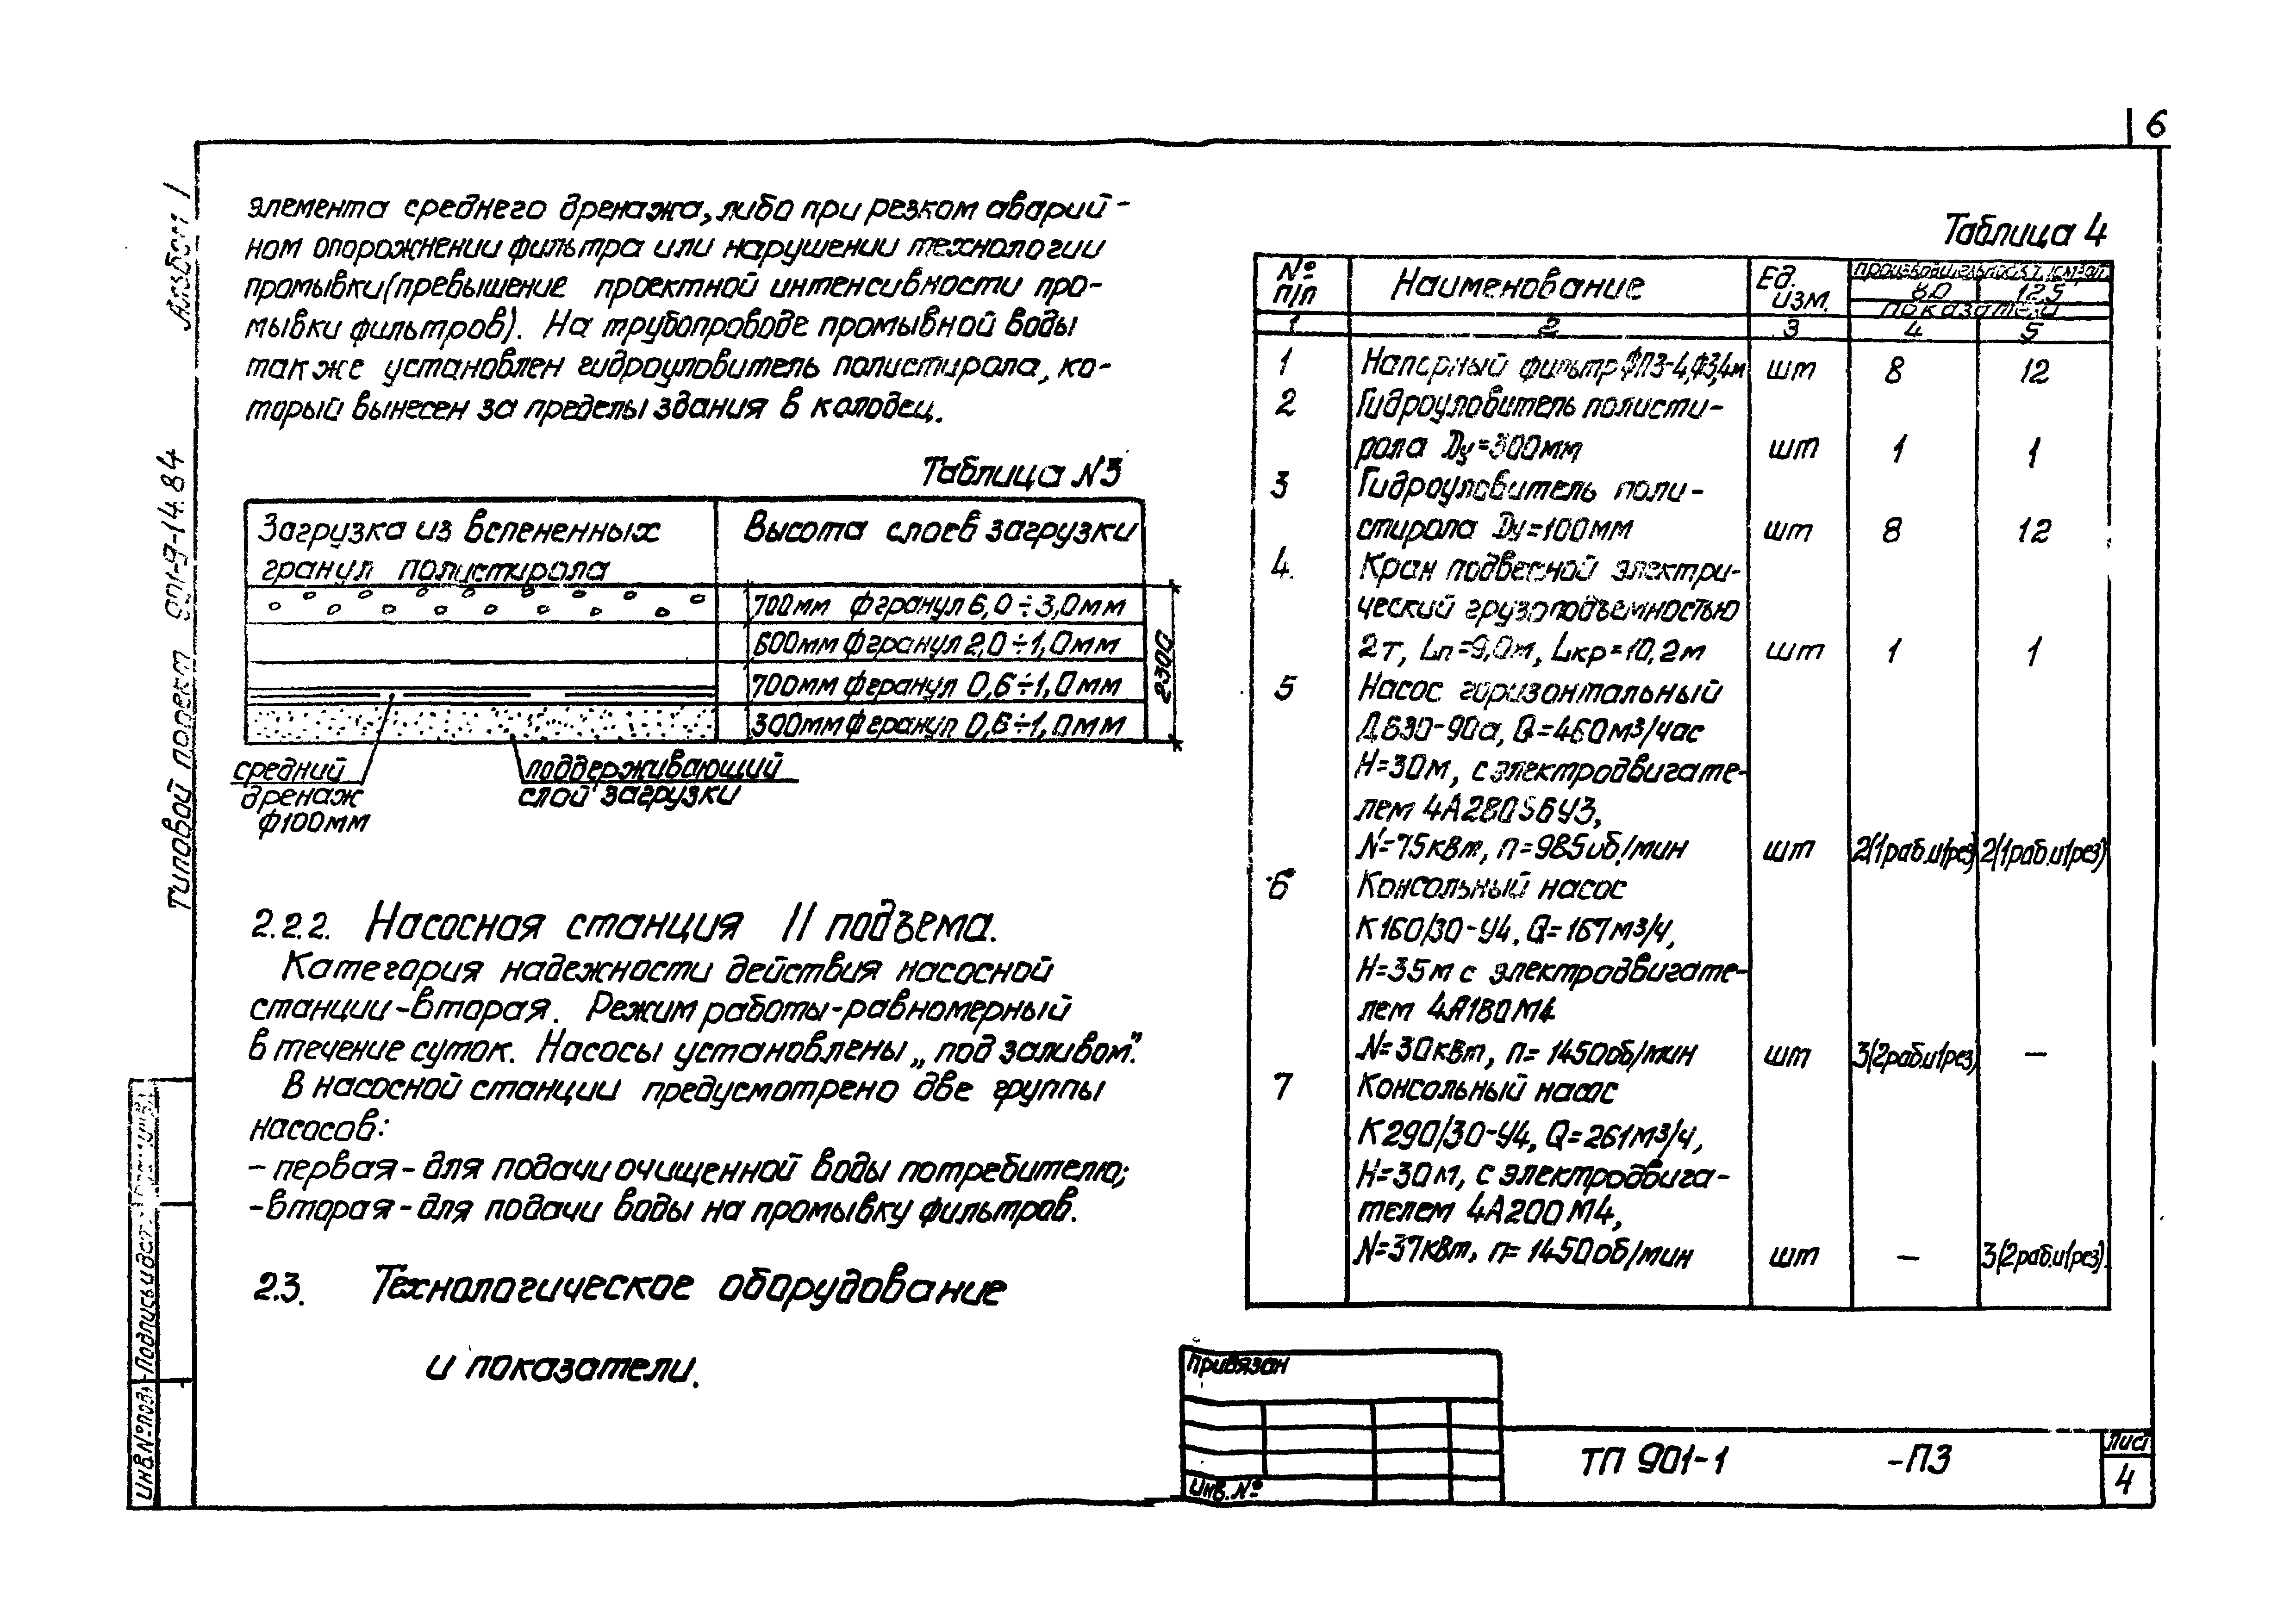 6
Альбом 1
Типовой проект 901-9-14.84
элемента среднего дренажа, либо при резком аварий-
ном опорожнении фильтра или нарушении технологии
промывки (превышение проектной интенсивности про-
мывки фильтров). На трубопроводе промывной воды
также установлен гидроуловитель полистирола, ко-
торый вынесен за пределы здания в колодец.
Таблица №3
Загрузка из вспененных гранул полистирола
Высота слоев загрузки
700мм ф гранул 6,0÷3,0мм
600мм ф гранул 2,0÷1,0мм
700мм ф гранул 0,6÷1,0мм
300мм ф гранул 0,6÷1,0мм
2300
средний
дренаж
ф100мм
поддерживающий
слой загрузки
2.2.2. Насосная станция II подъема.
Категория надежности действия насосной
станции-вторая. Режим работы-равномерный
в течение суток. Насосы установлены „под заливом".
В насосной станции предусмотрено две группы
насосов:
- первая - для подачи очищенной воды потребителю;
- вторая - для подачи воды на промывку фильтров.
2.3. Технологическое оборудование
и показатели.
Таблица 4
№ п/п
Наименование
Ед. изм.
8.0 12.5
показатели
1 2 3 4 5
1 Напорный фильтр ФПЗ-4, Ф3,4м шт 8 12
2 Гидроуловитель полисти-
рола Dу=300мм шт 1 1
3 Гидроуловитель поли-
стирола Dу=100мм шт 8 12
4. Кран подвесной электри-
ческий грузоподъемностью
2т, Lп=9,0м, Lкр=10,2м шт 1 1
5 Насос горизонтальный
Д630-90а, Q=460м3/час
Н=30м, с электродвигате-
лем 4А280S6У3,
N=75квт, п=985об/мин шт 2(1раб.и1рез) 2(1раб.и1рез)
6 Консольный насос
К160/30-У4, Q=167м3/ч,
Н=35м с электродвигате-
лем 4А180М4
N=30квт, п=1450об/мин шт 3(2раб.и1рез) —
7 Консольный насос
К290/30-У4, Q=261м3/ч,
Н=30м, с электродвига-
телем 4А200М4,
N=37квт, п=1450об/мин шт — 3(2раб.и1рез).
Привязан
Инв.№
ТП 901-1 -ПЗ
Лист
4
Инв.№подл. Подпись и дата